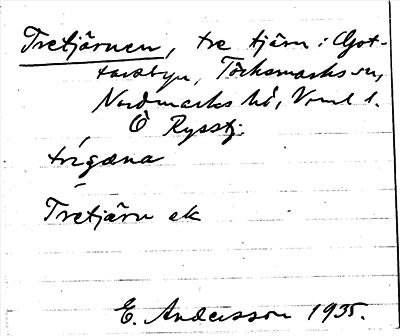 Tretjärnen, tre tjärn i Got-
tarsbyn, Töcksmarks sn,
Nordmarks hd, Vrml l.
Ö Rysstj.
trígæna
Tretjärn ek
E. Andersson 1935.